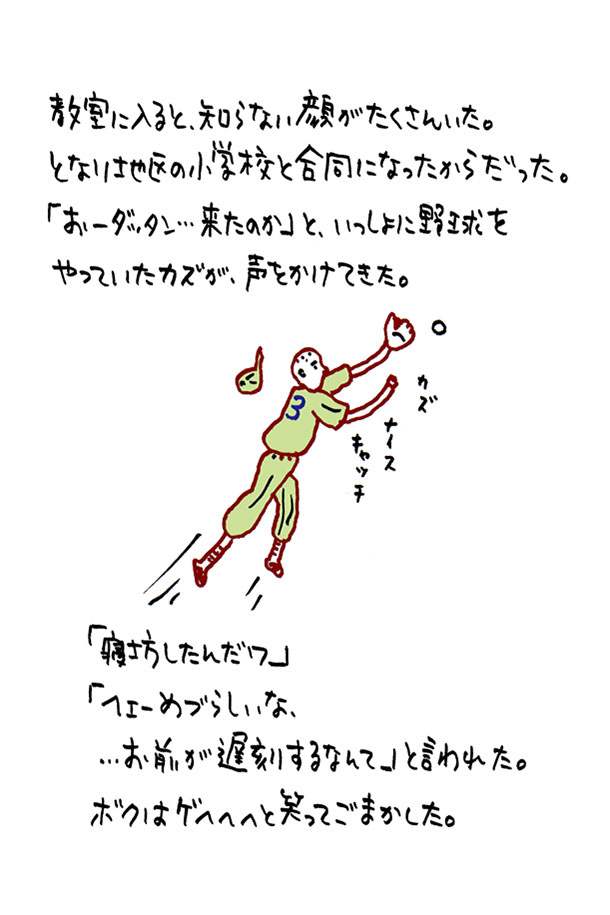 教室に入ると、知らない顔がたくさんいた。
となり地区の小学校と合同になったからだった。
「おーダッタン…来たのか」と、いっしょに野球を
やっていたカズが、声をかけてきた。
3
カズ
ナイス
キャッチ
「寝坊したんだワ」
「ヘェーめづらしいな、
…お前が遅刻するなんて」と言われた。
ボクはゲヘヘヘと笑ってごまかした。